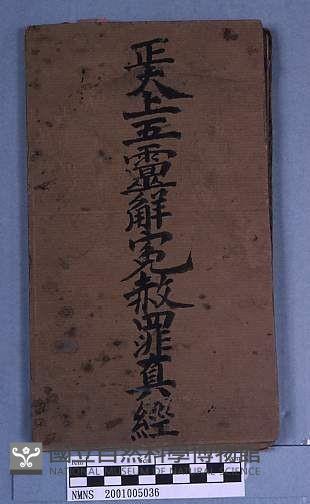 正太上五靈解冤赦罪真經
國立自然科學博物館
NATIONAL MUSEUM OF NATURAL SCIENCE
NMNS 2001005036